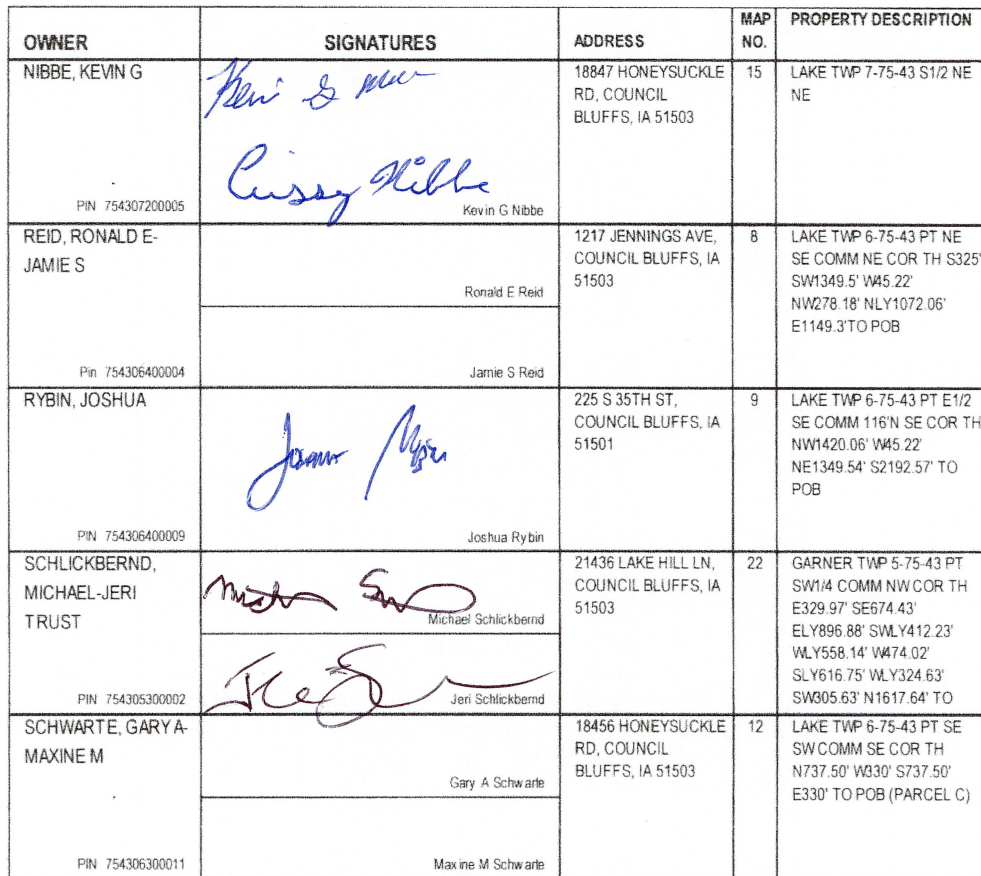 OWNER SIGNATURES ADDRESS MAP NO. PROPERTY DESCRIPTION
NIBBE, KEVIN G
Crissy Nibbe
PIN 754307200005
Kevin G Nibbe
18847 HONEYSUCKLE
RD, COUNCIL
BLUFFS, IA 51503
15
LAKE TWP 7-75-43 S1/2 NE
NE
REID, RONALD E-
JAMIE S
Pin 754306400004
Ronald E Reid
Jamie S Reid
1217 JENNINGS AVE,
COUNCIL BLUFFS, IA
51503
8
LAKE TWP 6-75-43 PT NE
SE COMM NE COR TH S325'
SW1349.5' W45.22'
NW278.18' NLY1072.06'
E1149.3'TO POB
RYBIN, JOSHUA
PIN 754306400009
Joshua Rybin
225 S 35TH ST,
COUNCIL BLUFFS, IA
51501
9
LAKE TWP 6-75-43 PT E1/2
SE COMM 116'N SE COR TH
NW1420.06' W45.22'
NE1349.54' S2192.57' TO
POB
SCHLICKBERND,
MICHAEL-JERI
TRUST
PIN 754305300002
Michael Schlickbernd
Jeri Schlickbernd
21436 LAKE HILL LN,
COUNCIL BLUFFS, IA
51503
22
GARNER TWP 5-75-43 PT
SW1/4 COMM NW COR TH
E329.97' SE674.43'
ELY896.88' SWLY412.23'
WLY558.14' W474.02'
SLY616.75' WLY324.63'
SW305.63' N1617.64' TO
SCHWARTE, GARY A-
MAXINE M
PIN 754306300011
Gary A Schwarte
Maxine M Schwarte
18456 HONEYSUCKLE
RD, COUNCIL
BLUFFS, IA 51503
12
LAKE TWP 6-75-43 PT SE
SW COMM SE COR TH
N737.50' W330' S737.50'
E330' TO POB (PARCEL C)